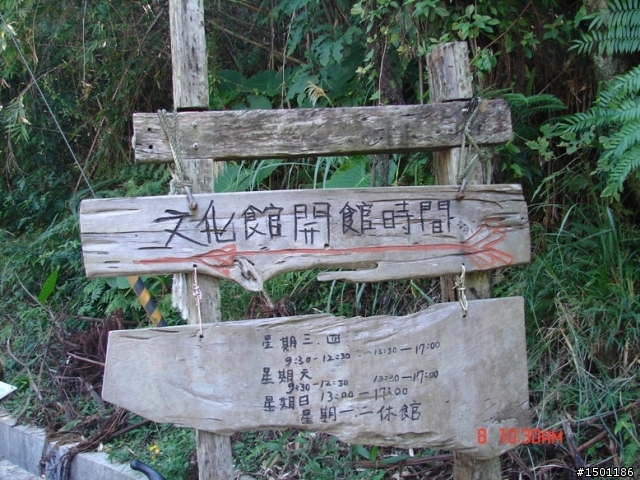 文化館開館時間
星期三.四
9:30-12:30 13:30-17:00
星期
9:30-12:30 13:30-17:00
星期日 13:00-17:00
星期一二休館
8 10:30AM
#1501186